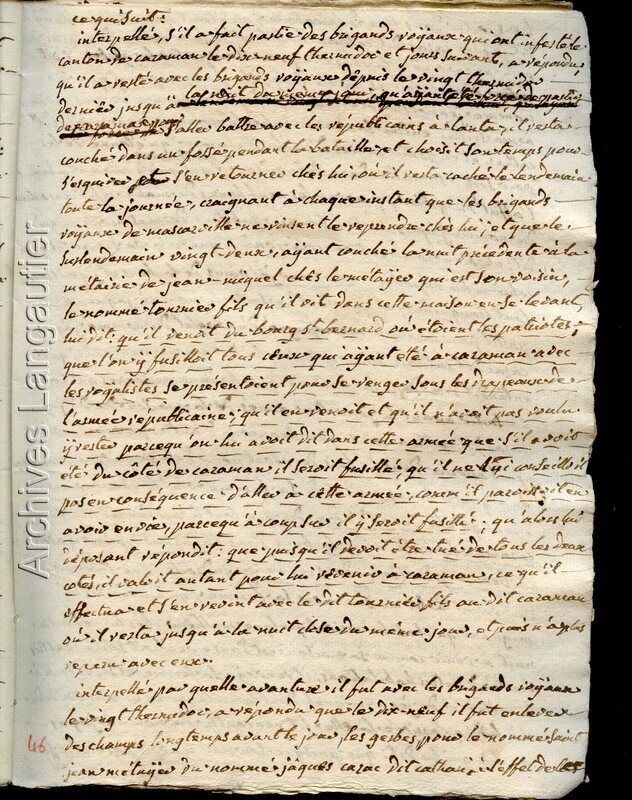 ce qui suit:
interpellé, s'il a fait partie des brigands royaux qui ont infesté le
canton de caraman le dix neuf thermidor et jours suivant, a répondu,
qu'il a resté avec les brigands royaux depuis le vingt thermidor
dernier jusqu'à la nuit du
d'aller battre avec les republicains à lanta, il resta
couché dans un fossé pendant la bataille, et choisit son temps pour
s'esquiver s'en retourner chès lui, où il resta caché le lendemain
toute la journée, craignant à chaque instant que les brigands
royaux de mascarville ne vinsent le reprendre chès lui, et que le
surlendemain vingt-deux, ayant couché la nuit précedente à la
métairie de jean-miquel chès le métayer qui est son voisin,
le nommé tournier fils qu'il vit dans cette maison en se levant,
lui dit: qu'il venoit du bourg st. bernard ou étoient les patriotes;
que l'on y fusilloit tous ceux qui ayant été à caraman avec
les royalistes se présentoient pour se ranger sous les drapeaux de
l'armée républicaine; qu'il en venoit et qu'il n'avoit pas voulu
y rester parcequ'on lui avoit dit dans cette armée que s'il avoit
été du côté de caraman il seroit fusillé qu'il ne lui conseilloit
pas en conséquence d'aller à cette armée, comm il paroissoit en
avoir envie, parcequ'à coup sur il y seroit fusillé: qu'alors lui
déposant répondit: que puisqu'il devoit être tué de tous les deux
cotés, il valoit autant pour lui revenir à caraman, ce qu'il
effectua et s'en revint avec le dit tournier fils au dit caraman
où il resta jusqu'à la nuit close du même jour, et puis n'a plus
reparu avec eux.
interpellé par quelle avanture il fut avec les brigands royaux
le vingt thermidor, a répondu que le dix-neuf il fut enlever
des champs longtemps avant le jour, les gerbes, pour le nommé saint
jean métayer du nommé jâques cazac dit cathala à l'effet de les
46
Archives Langautier